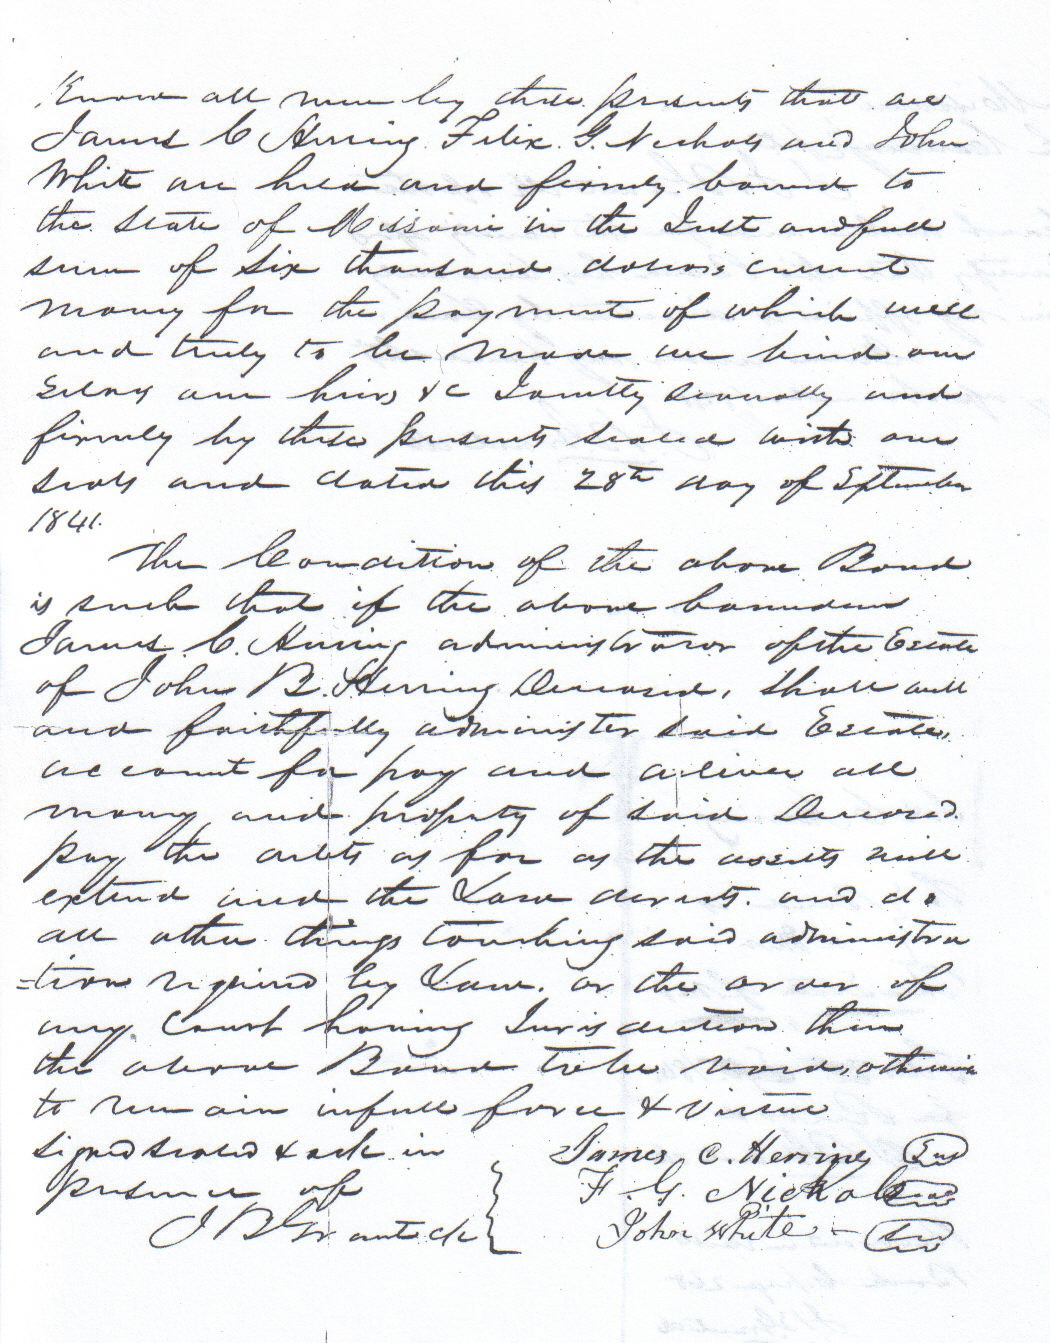 Know all men by these presents that we
James C Herring Felix G. Nichols and John
White are held and firmly bound to
the State of Missouri in the Just and full
sum of Six thousand dollars current
money for the payment of which well
and truly to be made we bind our
Selves our heirs &c Jointly severally and
firmly by these presents sealed with our
seals and dated this 28th day of September
1841.
The Condition of the above Bond
is such that if the above bounden
James C. Herring administrator of the Estate
of John B. Herring Deceased, Shall well
and faithfully administer said Estate,
account for pay and deliver all
money and property of said Deceased.
pay the debts as far as the assets will
extend and the Law directs. and do
all other things touching said administra
=tion required by Law. or the order of
any Court having Jurisdiction then
the above Bond to be void, otherwise
to remain in full force & virtue
Signed sealed & ack in
presence of
James C. Herring Seal
F. G. Nichols Seal
John White Seal